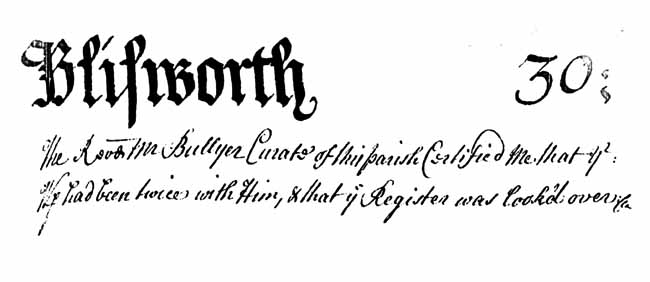 Blisworth 30:
The Revd. Mr Bullyer Curate of this parish Certified Me that ye:
had been twice with Him, & that ye Register was look'd over &c